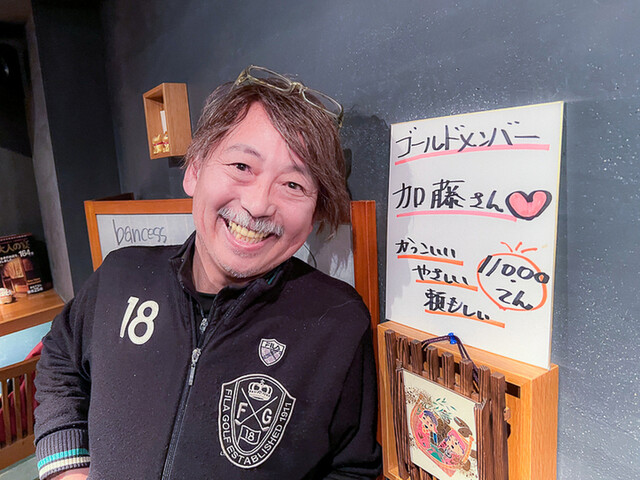 ゴールドメンバー
加藤さん
かっこいい
やさしい
頼もしい
11000
てん
bancess
18
FILA
F G
18
FILA GOLF ESTABLISHED 1911
大人の
184